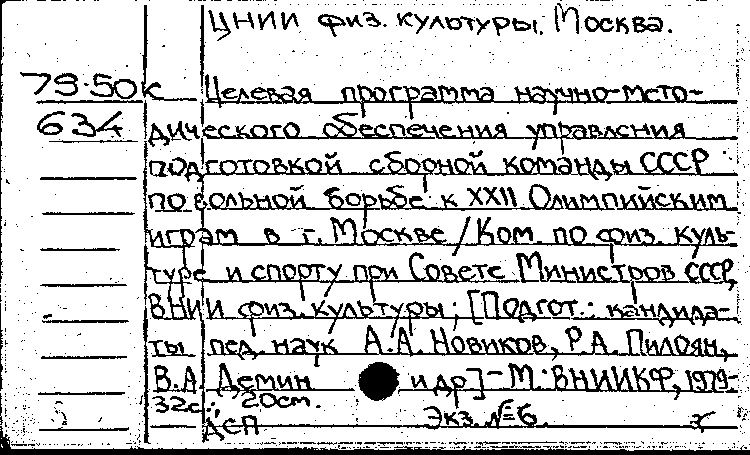 ЦНИИ физ. культуры. Москва.
79-50к Целевая программа научно-мето-
634 дического обеспечения управления
подготовкой сборной команды СССР
по вольной борьбе к XXII Олимпийским
играм в г. Москве / Ком. по физ. куль-
туре и спорту при Совете Министров СССР,
ВНИИ физ. культуры; [Подгот.: кандида-
ты пед. наук А.А. Новиков, Р.А. Пилоян,
В.А. Демин и др] - М.: ВНИИКФ, 1979-
32с.; 20см.
ДСП Экз. №6